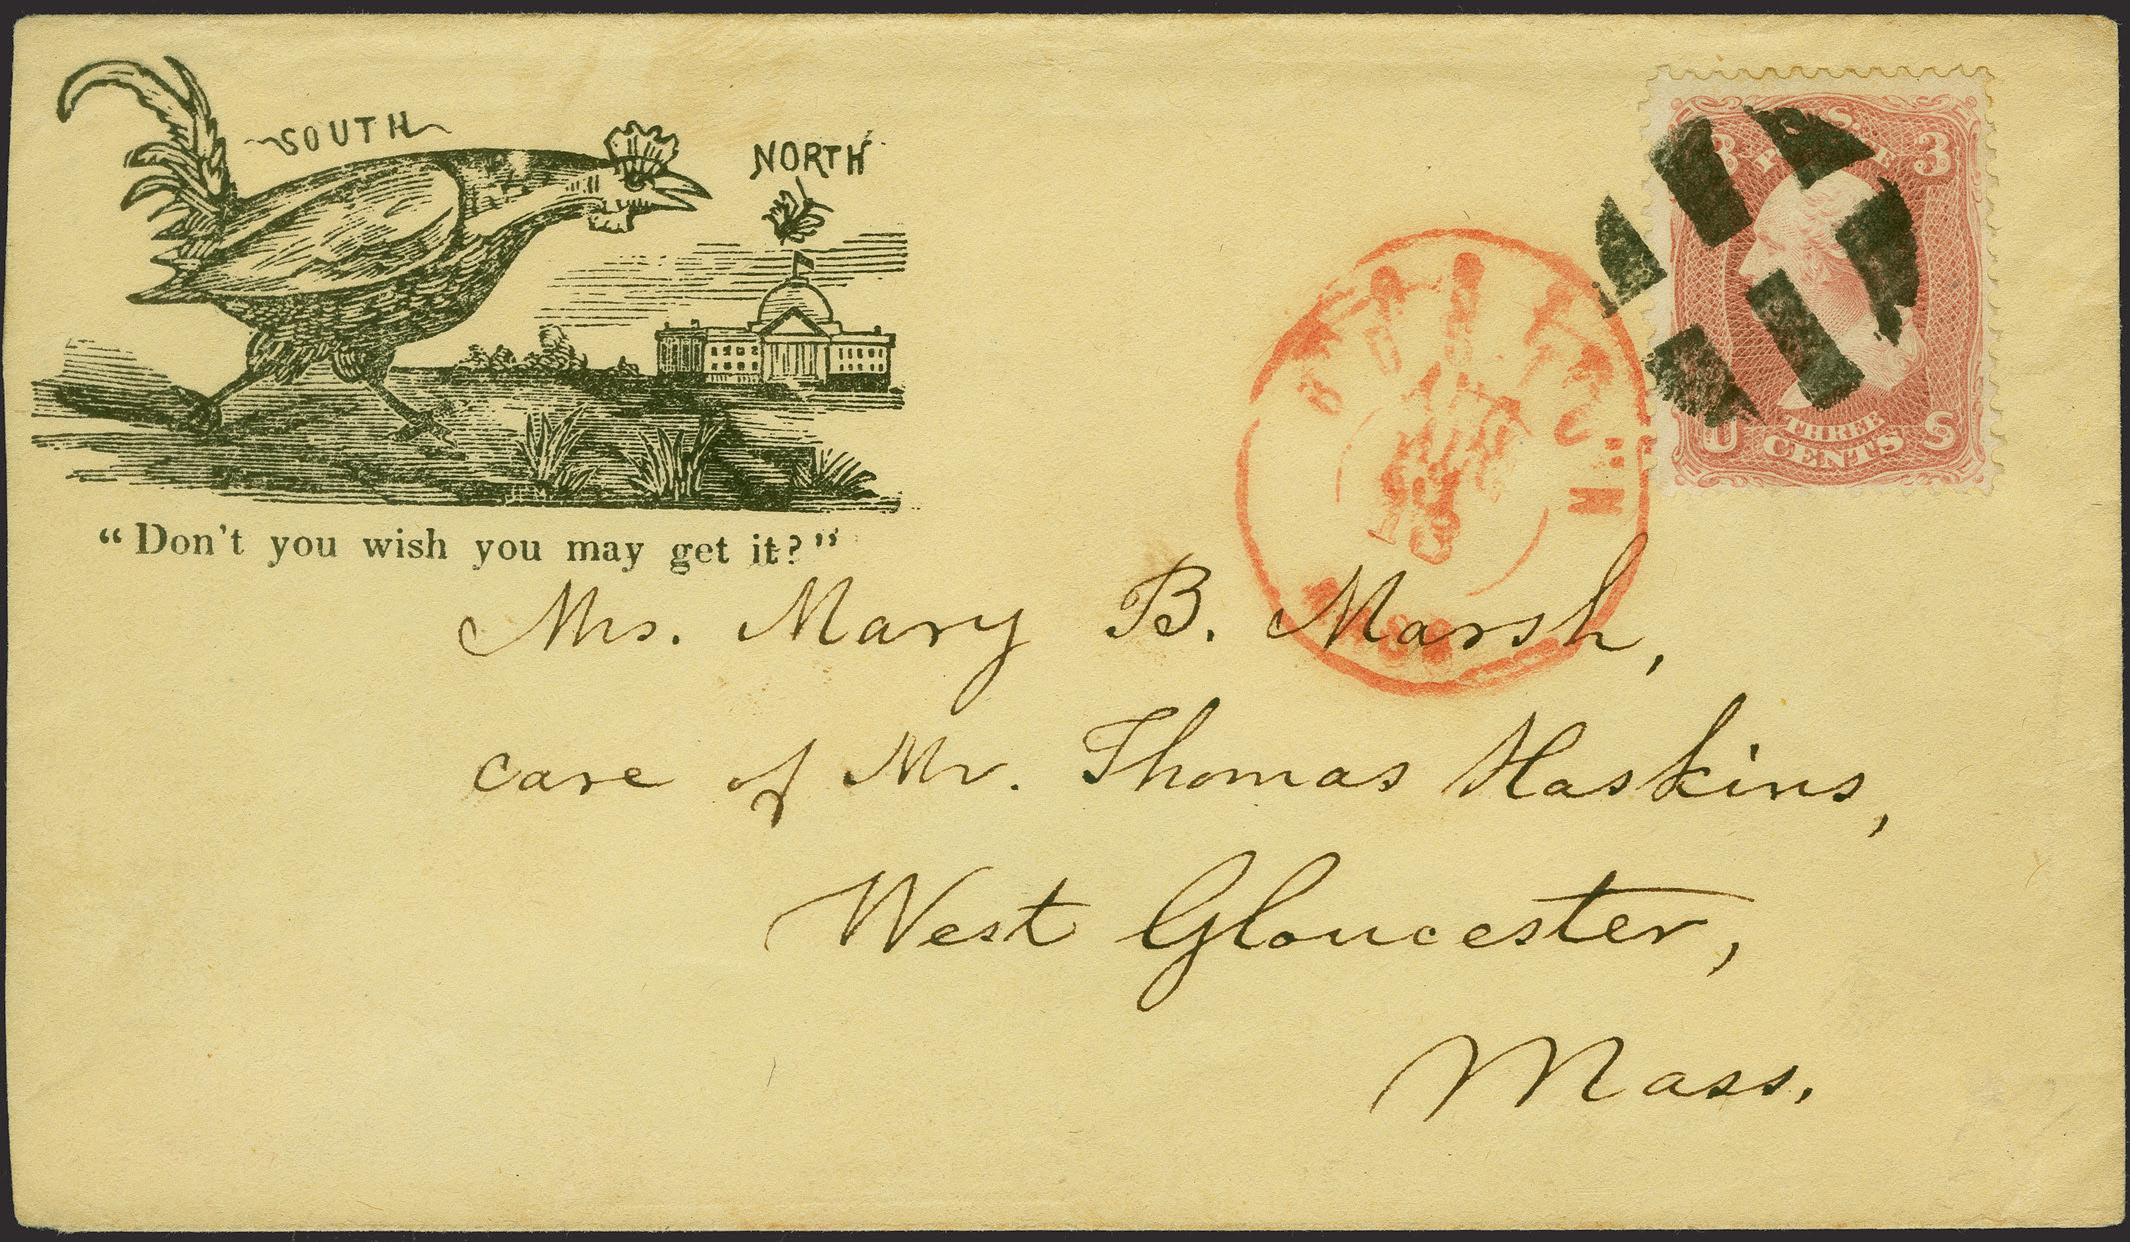 SOUTH
NORTH
"Don't you wish you may get it?"
U S
3 3
THREE
CENTS
MASS
Mrs. Mary B. Marsh,
care of Mr. Thomas Haskins,
West Gloucester,
Mass.